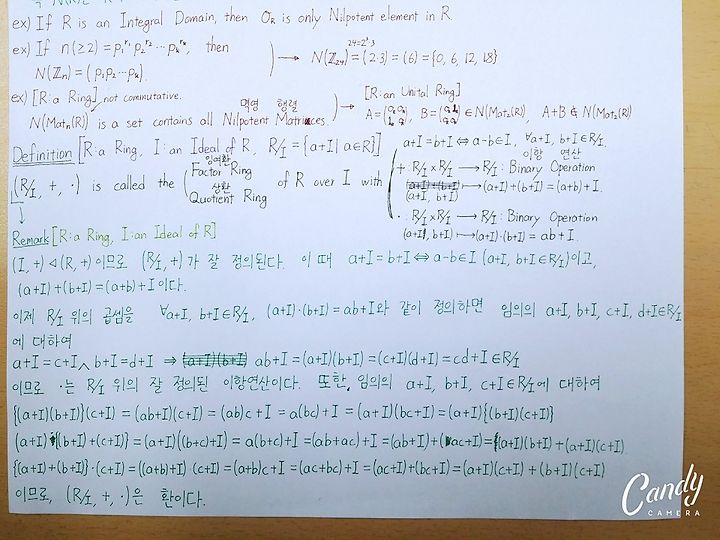 ex) If R is an Integral Domain, then 0_R is only Nilpotent element in R.
ex) If n(≥2) = p₁^r₁·p₂^r₂ ⋯ p_k^r_k, then
N(Z_n) = (p₁p₂⋯p_k).
24=2³·3
→ N(Z₂₄) = (2·3) = (6) = {0, 6, 12, 18}
ex) [R: a Ring] not commutative.
멱영 행렬
N(Mat_n(R)) is a set contains all Nilpotent Matrices.
→ [R: an Unital Ring]
∈ N(Mat₂(R)), A+B ∉ N(Mat₂(R))
Definition [R: a Ring, I: an Ideal of R, R/I = {a+I | a∈R}]
(R/I, +, ·) is called the
잉여환
Factor Ring
상환
Quotient Ring
of R over I with
a+I = b+I ⇔ a-b∈I, ∀a+I, b+I∈R/I.
이항 연산
+ : R/I × R/I → R/I : Binary Operation
(a+I, b+I) ↦ (a+I)+(b+I) = (a+b)+I.
· : R/I × R/I → R/I : Binary Operation
(a+I, b+I) ↦ (a+I)·(b+I) = ab+I.
Remark [R: a Ring, I: an Ideal of R]
(I, +) ◁ (R, +) 이므로 (R/I, +)가 잘 정의된다. 이 때 a+I = b+I ⇔ a-b∈I (a+I, b+I∈R/I)이고,
(a+I)+(b+I) = (a+b)+I이다.
이제 R/I 위의 곱셈을 ∀a+I, b+I∈R/I, (a+I)·(b+I) = ab+I와 같이 정의하면 임의의 a+I, b+I, c+I, d+I∈R/I
에 대하여
a+I = c+I ∧ b+I = d+I ⇒ ab+I = (a+I)(b+I) = (c+I)(d+I) = cd+I∈R/I
이므로 ·는 R/I 위의 잘 정의된 이항연산이다. 또한, 임의의 a+I, b+I, c+I∈R/I에 대하여
{(a+I)(b+I)}(c+I) = (ab+I)(c+I) = (ab)c+I = a(bc)+I = (a+I)(bc+I) = (a+I){(b+I)(c+I)}
(a+I){(b+I)+(c+I)} = (a+I)((b+c)+I) = a(b+c)+I = (ab+ac)+I = (ab+I)+(ac+I) = (a+I)(b+I)+(a+I)(c+I)
{(a+I)+(b+I)}·(c+I) = ((a+b)+I)·(c+I) = (a+b)c+I = (ac+bc)+I = (ac+I)+(bc+I) = (a+I)(c+I)+(b+I)(c+I)
이므로, (R/I, +, ·)은 환이다.
Candy
CAMERA